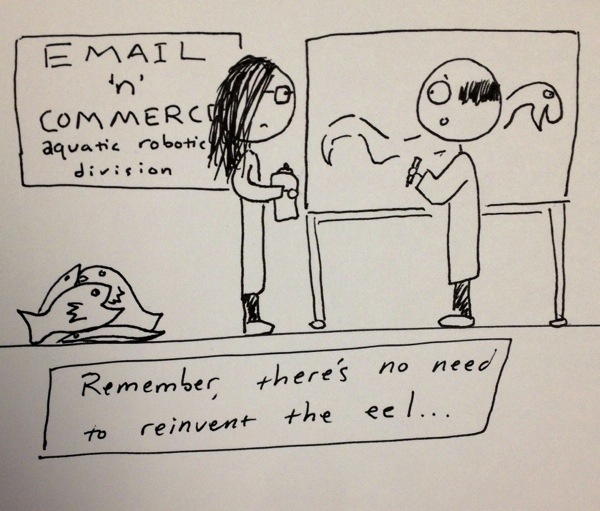 EMAIL
'n'
COMMERC
aquatic robotic
division
Remember, there's no need
to reinvent the eel...